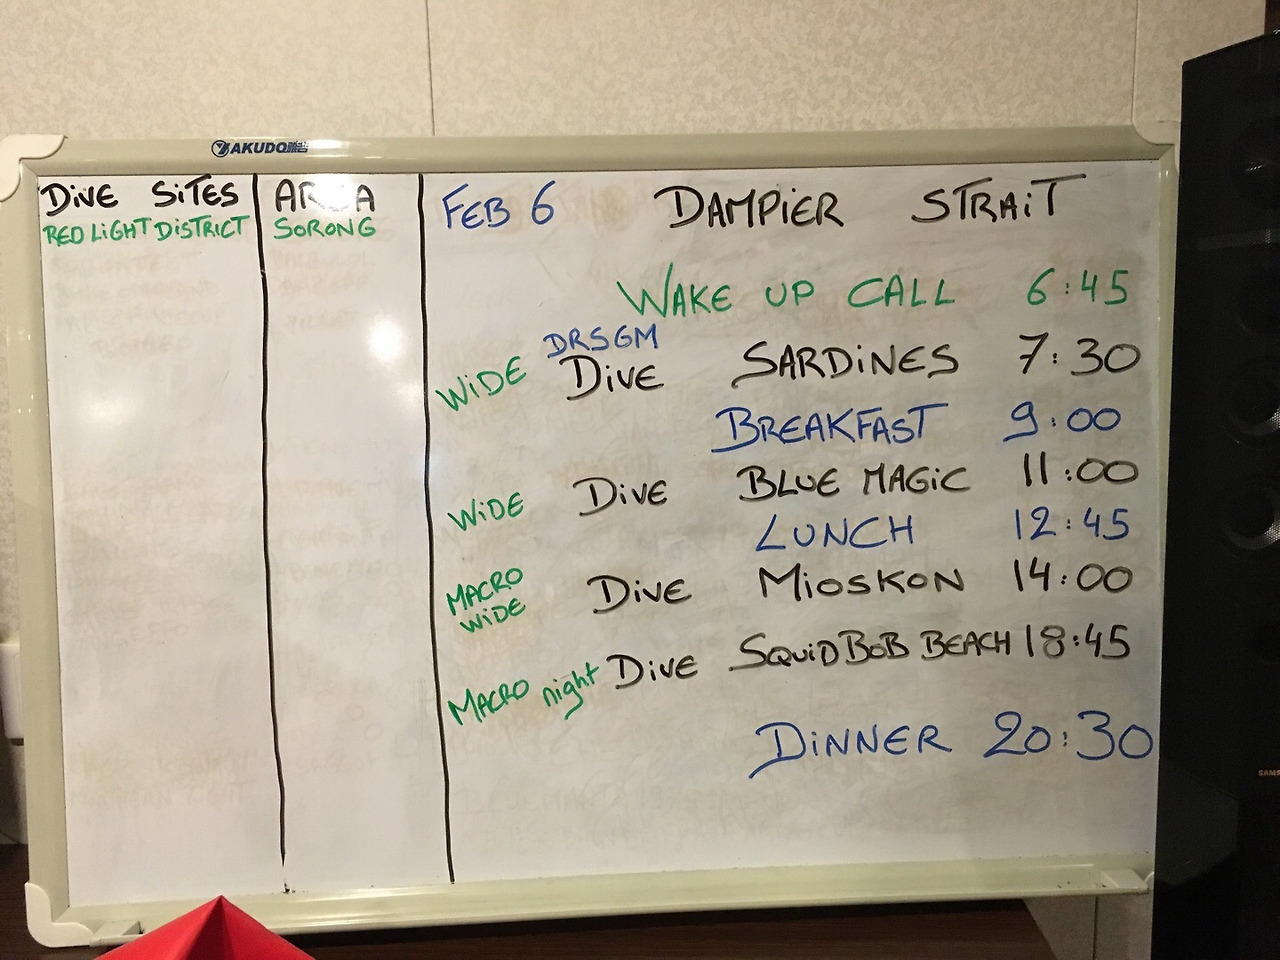 AKUDO
DIVE SITES
RED LIGHT DISTRICT
AREA
SORONG
FEB 6 DAMPIER STRAIT
WAKE UP CALL 6:45
DRSGM
WIDE DIVE SARDINES 7:30
BREAKFAST 9:00
WIDE DIVE BLUE MAGIC 11:00
LUNCH 12:45
MACRO
WIDE DIVE MIOSKON 14:00
MACRO night DIVE SQUIDBOB BEACH 18:45
DINNER 20:30
SAMS